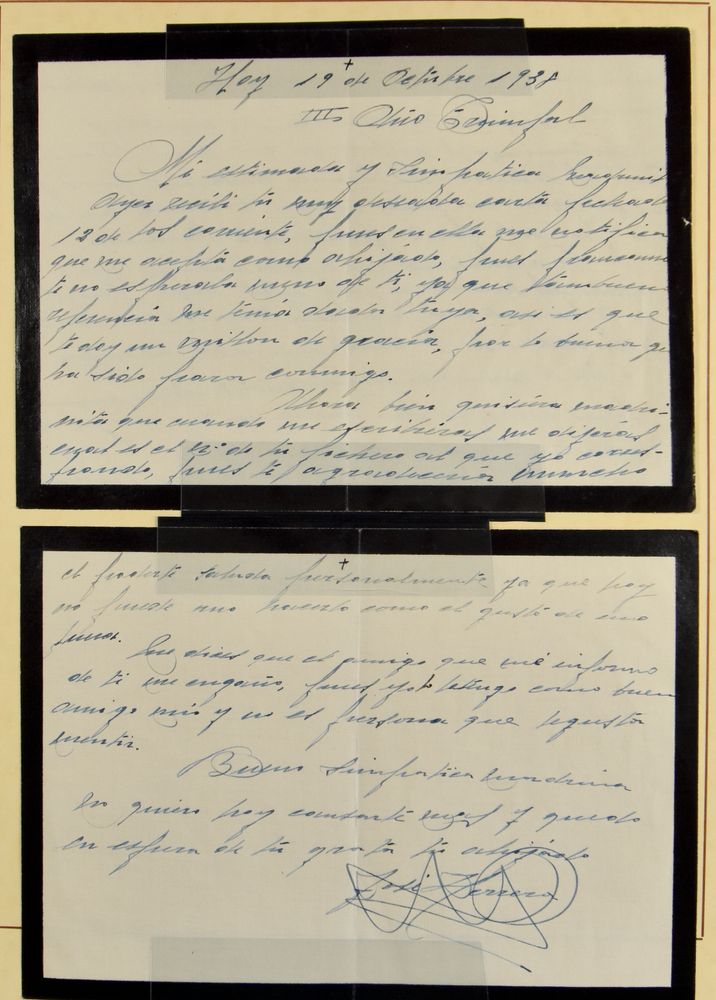 Hoy 19 de Octubre 1938
III Año Triunfal
Mi estimada y Simpatica
Ayer recibi tu muy deseada carta fechada
12 de los corriente, pues en ella me notifica
que me acepta como ahijado, pues francamen
te no esperaba menos de ti, ya que tan buena
referencia me tenia dada tuya, asi es que
te doy un millon de gracia, por lo buena q
ha sido para conmigo.
Ahora bien quisiera madri-
nita que cuando me escribieras me dijeras
cual es el nº de tu al que yo corres-
pondo, pues te agradeceria mucho
el poderte saluda personalmente ya que hoy
no puede uno hacerlo como el gusto de uno
fuera.
Me dices que el amigo que me informo
de ti me engaño, pues yo lo tengo como buen
amigo mio y no es persona que le gusta
mentir.
Bueno Simpatica madrina
no quiero hoy cansarte mas y quedo
en espera de tu grata tu ahijado
José Herrera